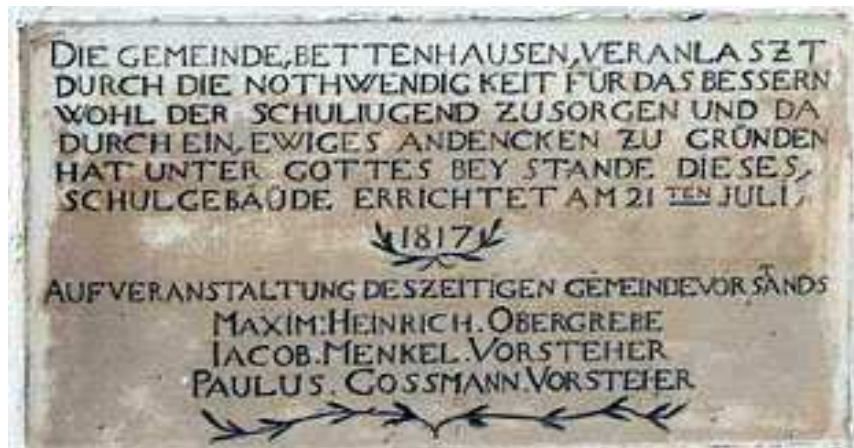 DIE GEMEINDE, BETTENHAUSEN, VERANLASZT
DURCH DIE NOTHWENDIGKEIT FÜR DAS BESSERN
WOHL DER SCHULIUGEND ZUSORGEN UND DA
DURCH EIN, EWIGES ANDENCKEN ZU GRÜNDEN
HAT UNTER GOTTES BEY STANDE DIESES,
SCHULGEBAÜDE ERRICHTET AM 21 TEN JULI,
1817
AUF VERANSTALTUNG DES ZEITIGEN GEMEINDEVORSTANDS
MAXIM: HEINRICH. OBERGREBE
IACOB. MENKEL. VORSTEHER
PAULUS. GOSSMANN. VORSTEHER